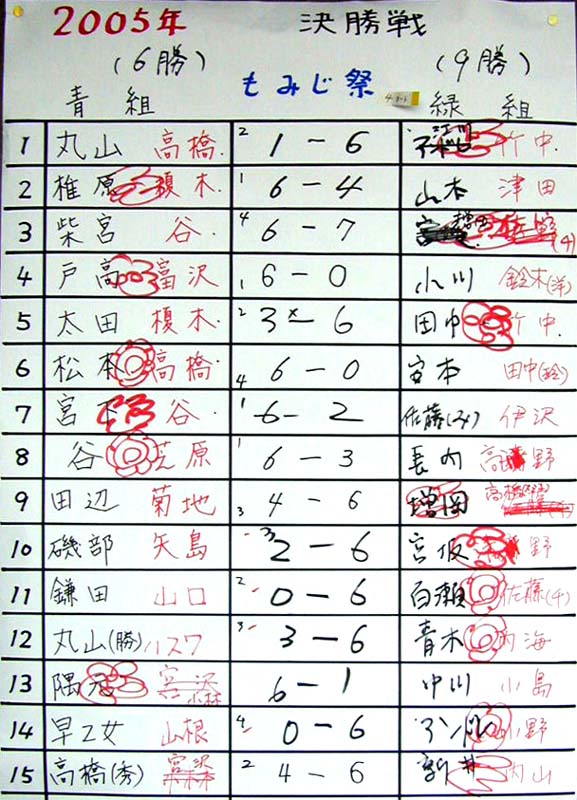 2005年 決勝戦
(6勝) もみじ祭 (9勝)
青組 緑組
1 丸山 高橋 2 1-6 竹中
2 椎原 榎木 1 6-4 山本 津田
3 柴宮 谷 4 6-7
4 戸高 富沢 1 6-0 小川 鈴木(洋)
5 太田 榎木 2 3-6 田中 竹中
6 松本 高橋 4 6-0 安本 田中(玲)
7 宮下 谷 1 6-2 佐藤(み) 伊沢
8 谷 芝原 1 6-3 長内 高野
9 田辺 菊地 3 4-6 増岡 高橋
10 磯部 矢島 3 2-6 宮坂 野
11 鎌田 山口 2 0-6 百瀬 佐藤(千)
12 丸山(勝) ハスワ 3 3-6 青木 内海
13 隅 宮沢 小林 6-1 中川 小島
14 早乙女 山根 4 0-6 アンドル 小野
15 高橋(秀) 宮沢 2 4-6 新井 内山